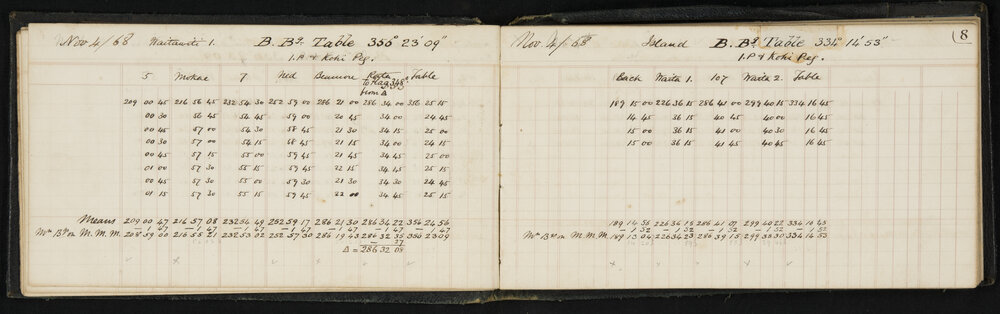 Nov 4/68 Waitawiti 1. B. Bs. Table 356° 23' 09"
1. P. & Koki Peg.
5 Mokae 7 Ned Beaumore Kaita Table
to Flag 348°
from Δ
209 00 45 216 56 45 232 54 30 252 59 00 286 21 00 286 34 00 356 25 15
00 30 56 45 54 45 59 00 20 45 34 00 24 45
00 45 57 00 54 30 58 45 21 30 34 15 25 00
00 30 57 00 54 15 58 45 21 15 34 00 24 15
00 45 57 15 55 00 59 45 21 45 34 45 25 00
01 00 57 30 55 15 59 45 22 15 34 45 25 15
00 45 57 30 55 00 59 30 21 30 34 30 24 45
01 15 57 30 55 15 59 45 22 00 34 45 25 15
Means 209 00 47 216 57 08 232 54 49 252 59 17 286 21 30 286 34 22 356 24 56
– 1 47 – 1 47 – 1 47 – 1 47 – 1 47 – 1 47 – 1 47
Mn Bs. on M. M. M. 208 59 00 216 55 21 232 53 02 252 57 30 286 19 43 286 32 35 356 23 09
– 37
Δ = 286 32 08
Nov 4/68 Island B. Bs. Table 334° 14' 53"
1. P. & Koki Peg.
8
Back Waita 1. 107 Waita 2. Table
189 15 00 226 36 15 286 41 00 299 40 15 334 16 45
14 45 36 15 40 45 40 00 16 45
15 00 36 15 41 00 40 30 16 45
15 00 36 15 41 45 40 45 16 45
189 14 56 226 36 15 286 41 07 299 40 22 334 16 45
– 1 52 – 1 52 – 1 52 – 1 52 – 1 52
Mn Bs. on M. M. M. 189 13 04 226 34 23 286 39 15 299 38 30 334 14 53